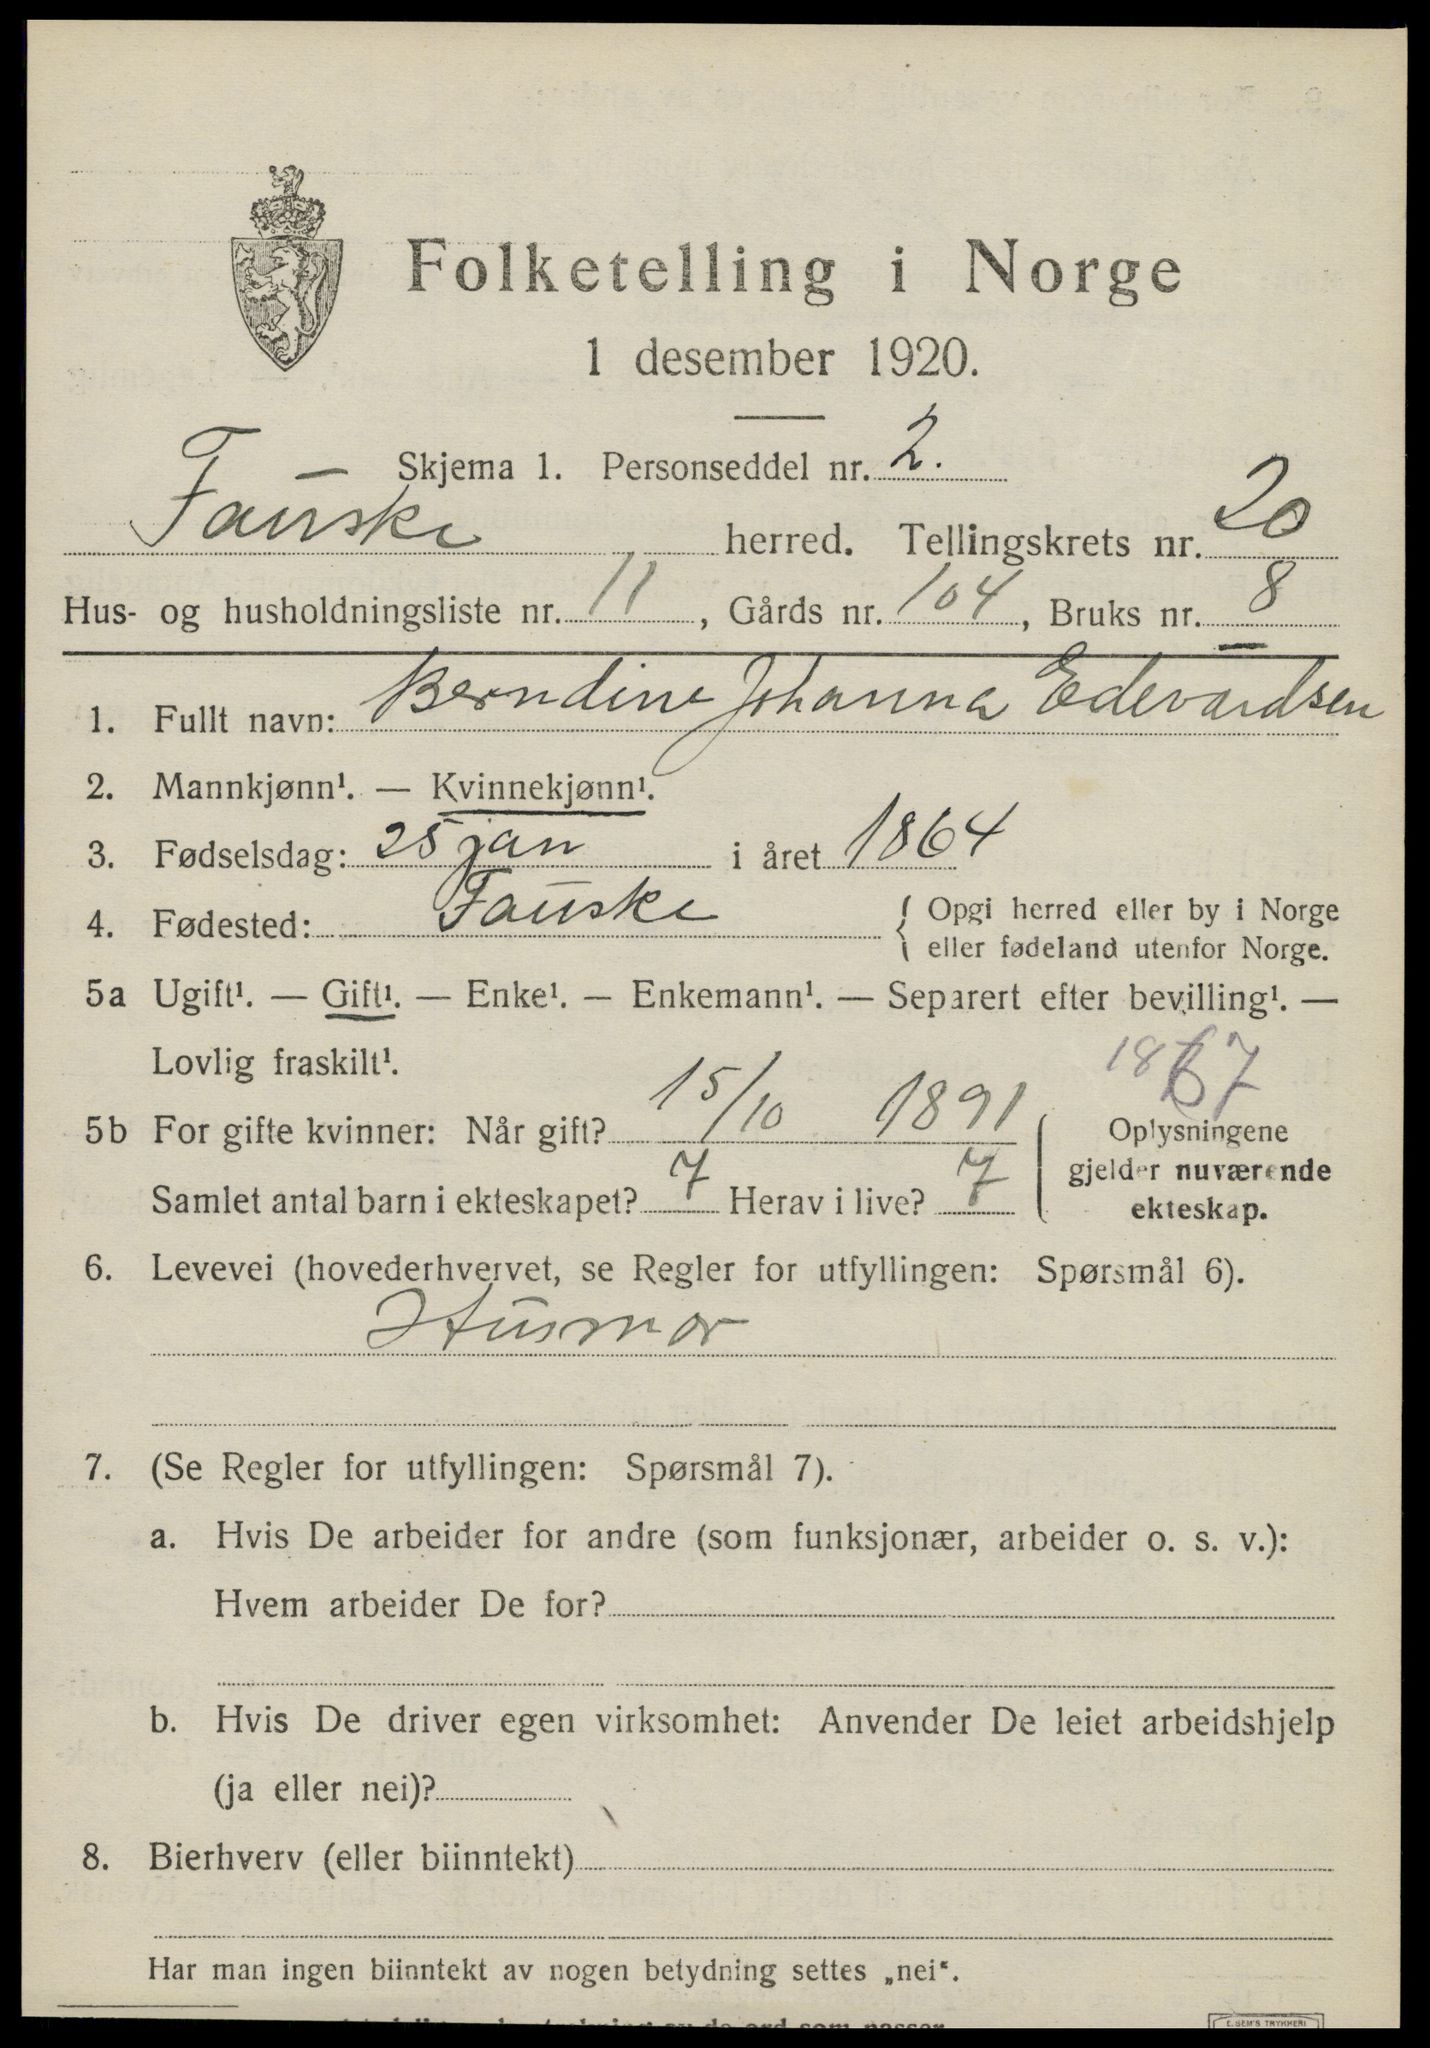 Folketelling i Norge
1 desember 1920.
Skjema 1. Personseddel nr. 2.
Fauske herred. Tellingskrets nr. 20
Hus- og husholdningsliste nr. 11, Gårds nr. 104, Bruks nr. 8
1. Fullt navn: Berndine Johanna Edevardsen
2. Mannkjønn¹. — Kvinnekjønn¹.
3. Fødselsdag: 25 jan i året 1864
4. Fødested: Fauske { Opgi herred eller by i Norge
eller fødeland utenfor Norge.
5a Ugift¹. — Gift¹. — Enke¹. — Enkemann¹. — Separert efter bevilling¹. —
Lovlig fraskilt¹.
5b For gifte kvinner: Når gift? 15/10 1891 Oplysningene
gjelder nuværende
Samlet antal barn i ekteskapet? 7 Herav i live? 7 ekteskap.
6. Levevei (hovederhvervet, se Regler for utfyllingen: Spørsmål 6).
Husmor
7. (Se Regler for utfyllingen: Spørsmål 7).
a. Hvis De arbeider for andre (som funksjonær, arbeider o. s. v.):
Hvem arbeider De for?
b. Hvis De driver egen virksomhet: Anvender De leiet arbeidshjelp
(ja eller nei)?
8. Bierhverv (eller biinntekt)
Har man ingen biinntekt av nogen betydning settes „nei".
E. SEM'S TRYKKERI